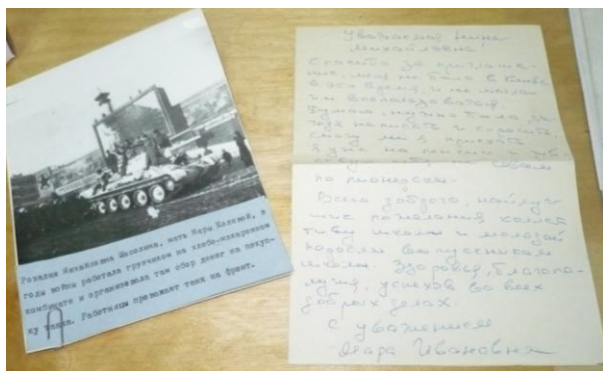 Розалия Михайловна Шаолина, мать Мары Калиной, в
годы войны работала грузчиком на хлебо-макаронном
комбинате и организовала там сбор денег на покуп-
ку танка. Работницы провожают танк на фронт.
Уважаемая Нина
Михайловна!
Спасибо за приглаше-
ние, меня не было в Киеве
в это время, и не могла
им воспользоваться.
Думаю, нужно было
написать и спросить,
смогу ли я приехать.
Я уже на пенсии и
по-пионерски.
Всего доброго, наилуч-
шие пожелания коллек
тиву школы и молодой
выпускникам
школы. Здоровья, благопо-
лучия, успехов во всех
добрых делах.
С уважением
Мара Ивановна